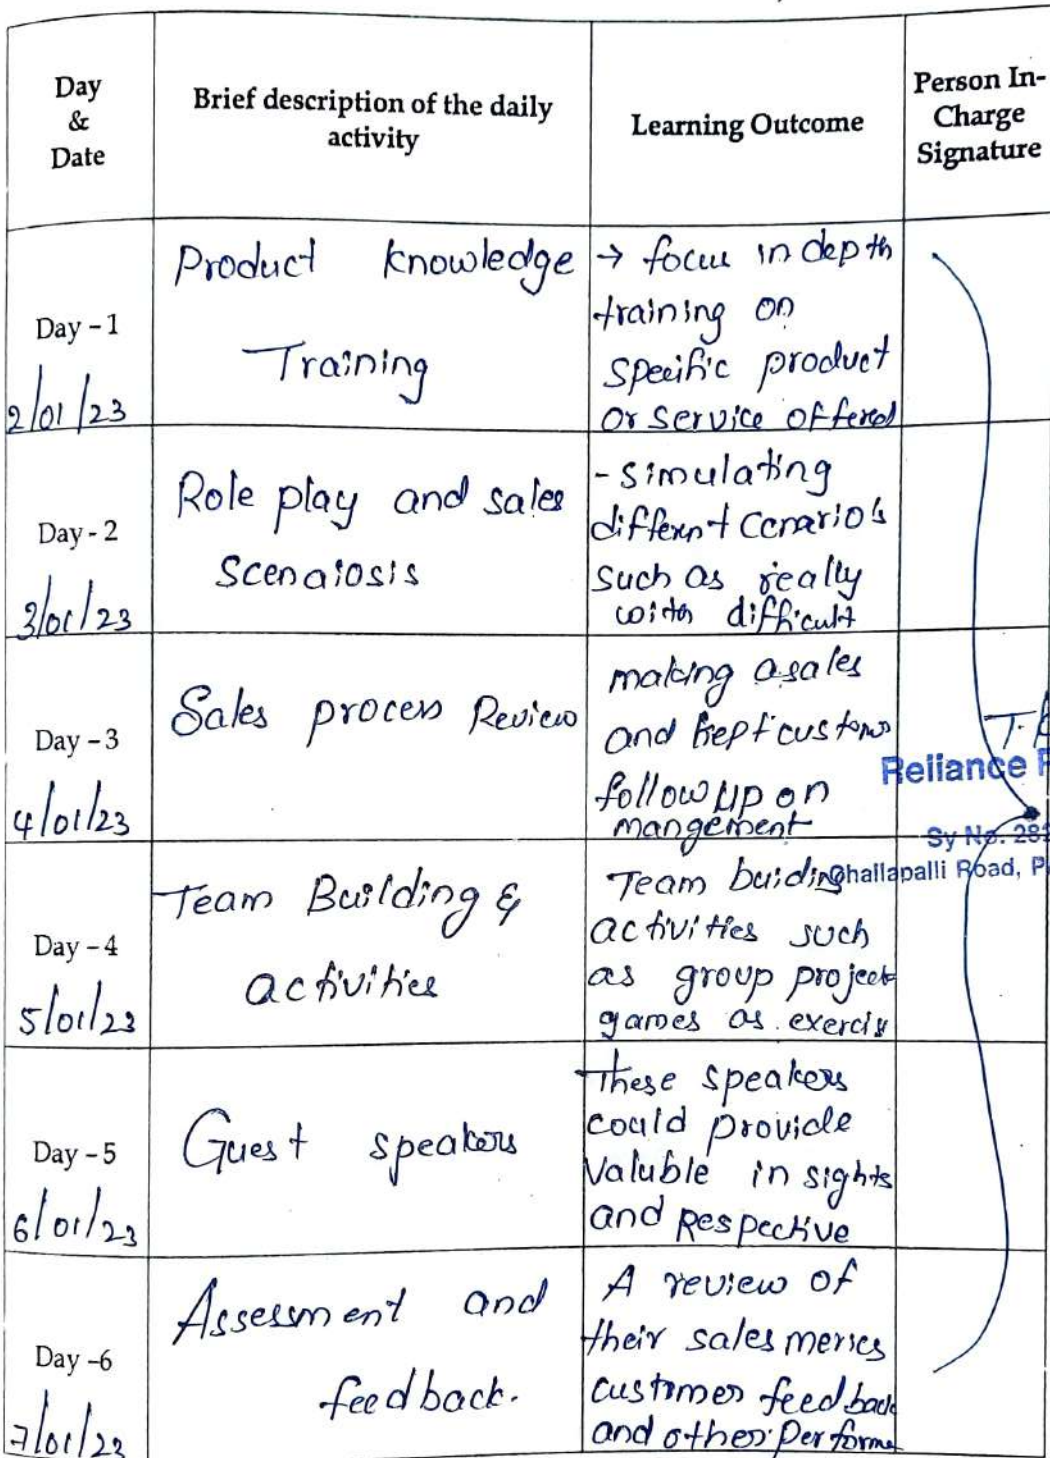 Day
&
Date
Brief description of the daily
activity
Learning Outcome
Person In-
Charge
Signature
Day - 1
2/01/23
Product knowledge
Training
→ focus in depth
training on
specific product
or service offered
Day - 2
3/01/23
Role play and sales
Scenaiosis
- simulating
different Cenario's
such as really
with difficult
Day - 3
4/01/23
Sales process Review
making a sales
and kept customs
follow up on
mangement
T.
Reliance
Sy No. 282
Challapalli Road, P
Day - 4
5/01/23
Team Building &
activities
Team buiding
activities such
as group project
games as exercis
Day - 5
6/01/23
Guest speakers
These speakers
could provide
valuble in sights
and Respective
Day -6
7/01/23
Assessment and
feedback.
A review of
their sales merics
customer feedback
and other performe